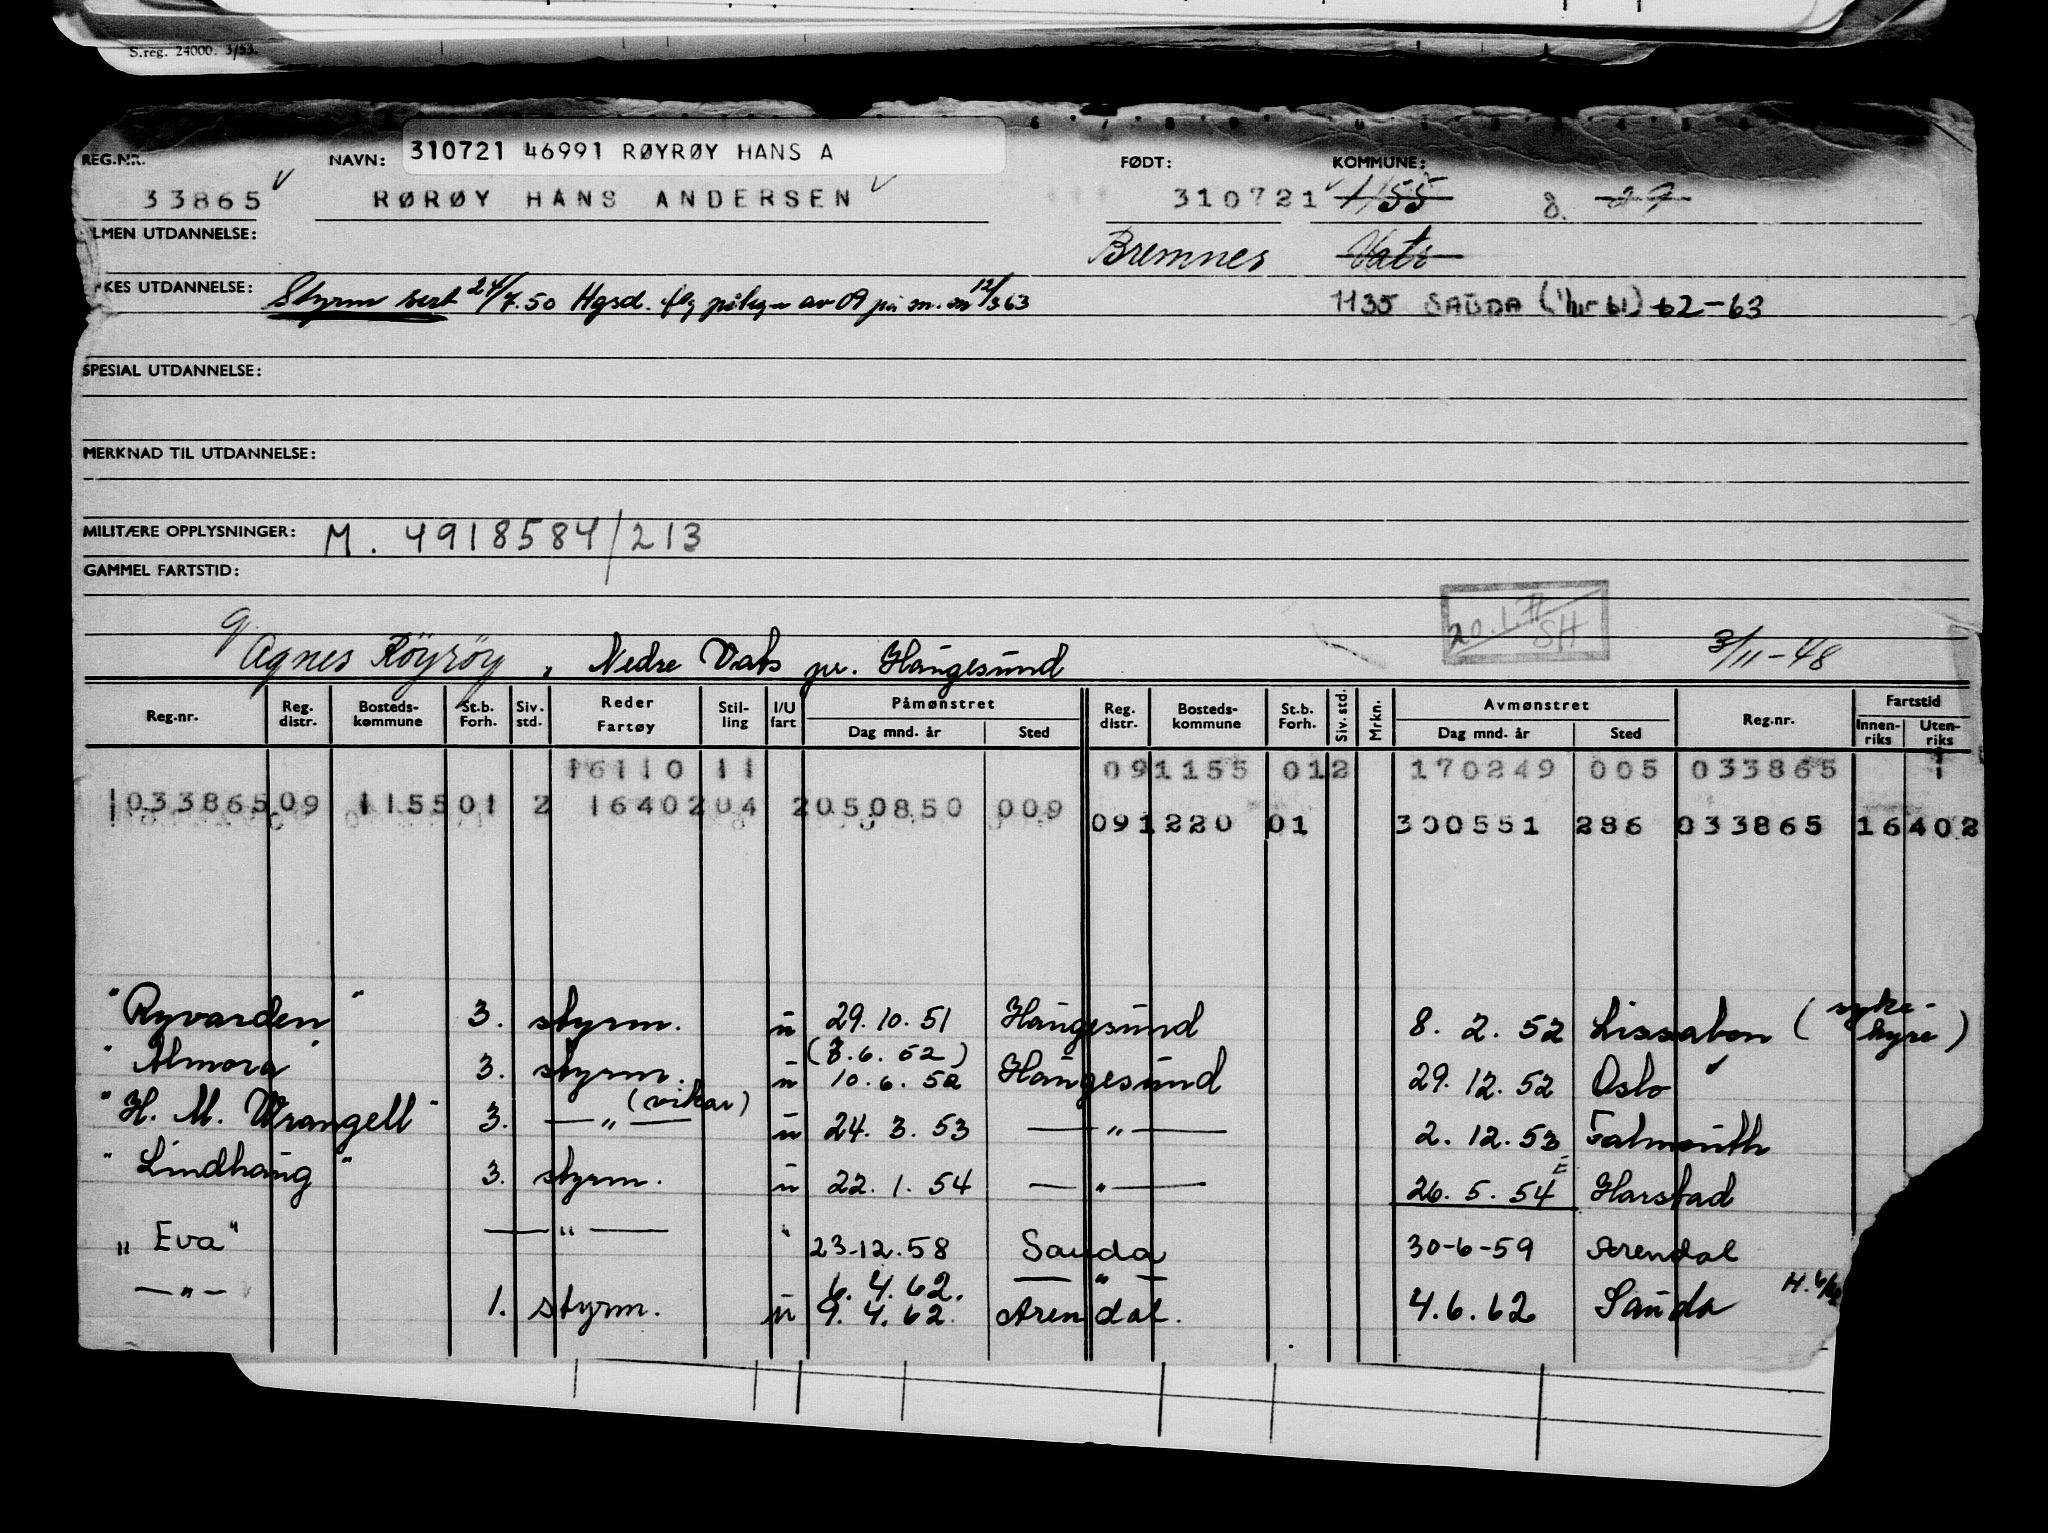 S.reg. 24000. 3/53.
REG.NR. NAVN: 310721 46991 RØYRØY HANS A FØDT: KOMMUNE:
33865 RØRØY HANS ANDERSEN 310721 1155 g.
LMEN UTDANNELSE: Bremnes Vats
KES UTDANNELSE: Styrm sert 24/7.50 Hgsd. av 09 på 12/3 63 1135 SAUDA ( 61) 62-63
SPESIAL UTDANNELSE:
MERKNAD TIL UTDANNELSE:
MILITÆRE OPPLYSNINGER: M. 4918584/213
GAMMEL FARTSTID:
SH
g Agnes Röyröy, Nedre Vats pr. Haugesund 3/11-48
Reg.nr. Reg. distr. Bosteds-kommune St.b. Forh. Siv. std. Reder Fartøy Stil-ling I/U fart Påmønstret Dag mnd. år Sted Reg. distr. Bosteds-kommune St.b. Forh. Siv. std. Mrkn. Avmønstret Dag mnd. år Sted Reg.nr. Fartstid Innen-riks Uten-riks
16110 11 091155 012 170249 005 033865 1
103386509 115501 2 1640204 2050850 009
091220 01 300551 286 033865 16402
"Ryvarden" 3. styrm. u 29.10.51 Haugesund 8. 2. 52 Lissabon (syke-hyre)
(3.6.52)
"Almora" 3. styrm. u 10.6.52 Haugesund 29.12.52 Oslo
"H. M. Wrangell" 3. —"— (vikar) u 24.3.53 —"— 2.12.53 Falmouth
"Lindhaug" 3. styrm. u 22.1.54 —"— 26.5.54 Harstad
"Eva" —"— " 23-12.58 Sauda 30-6-59 Arendal
6.4.62. —"—
—"— 1. styrm. u 9.4.62. Arendal. 4.6.62 Sauda